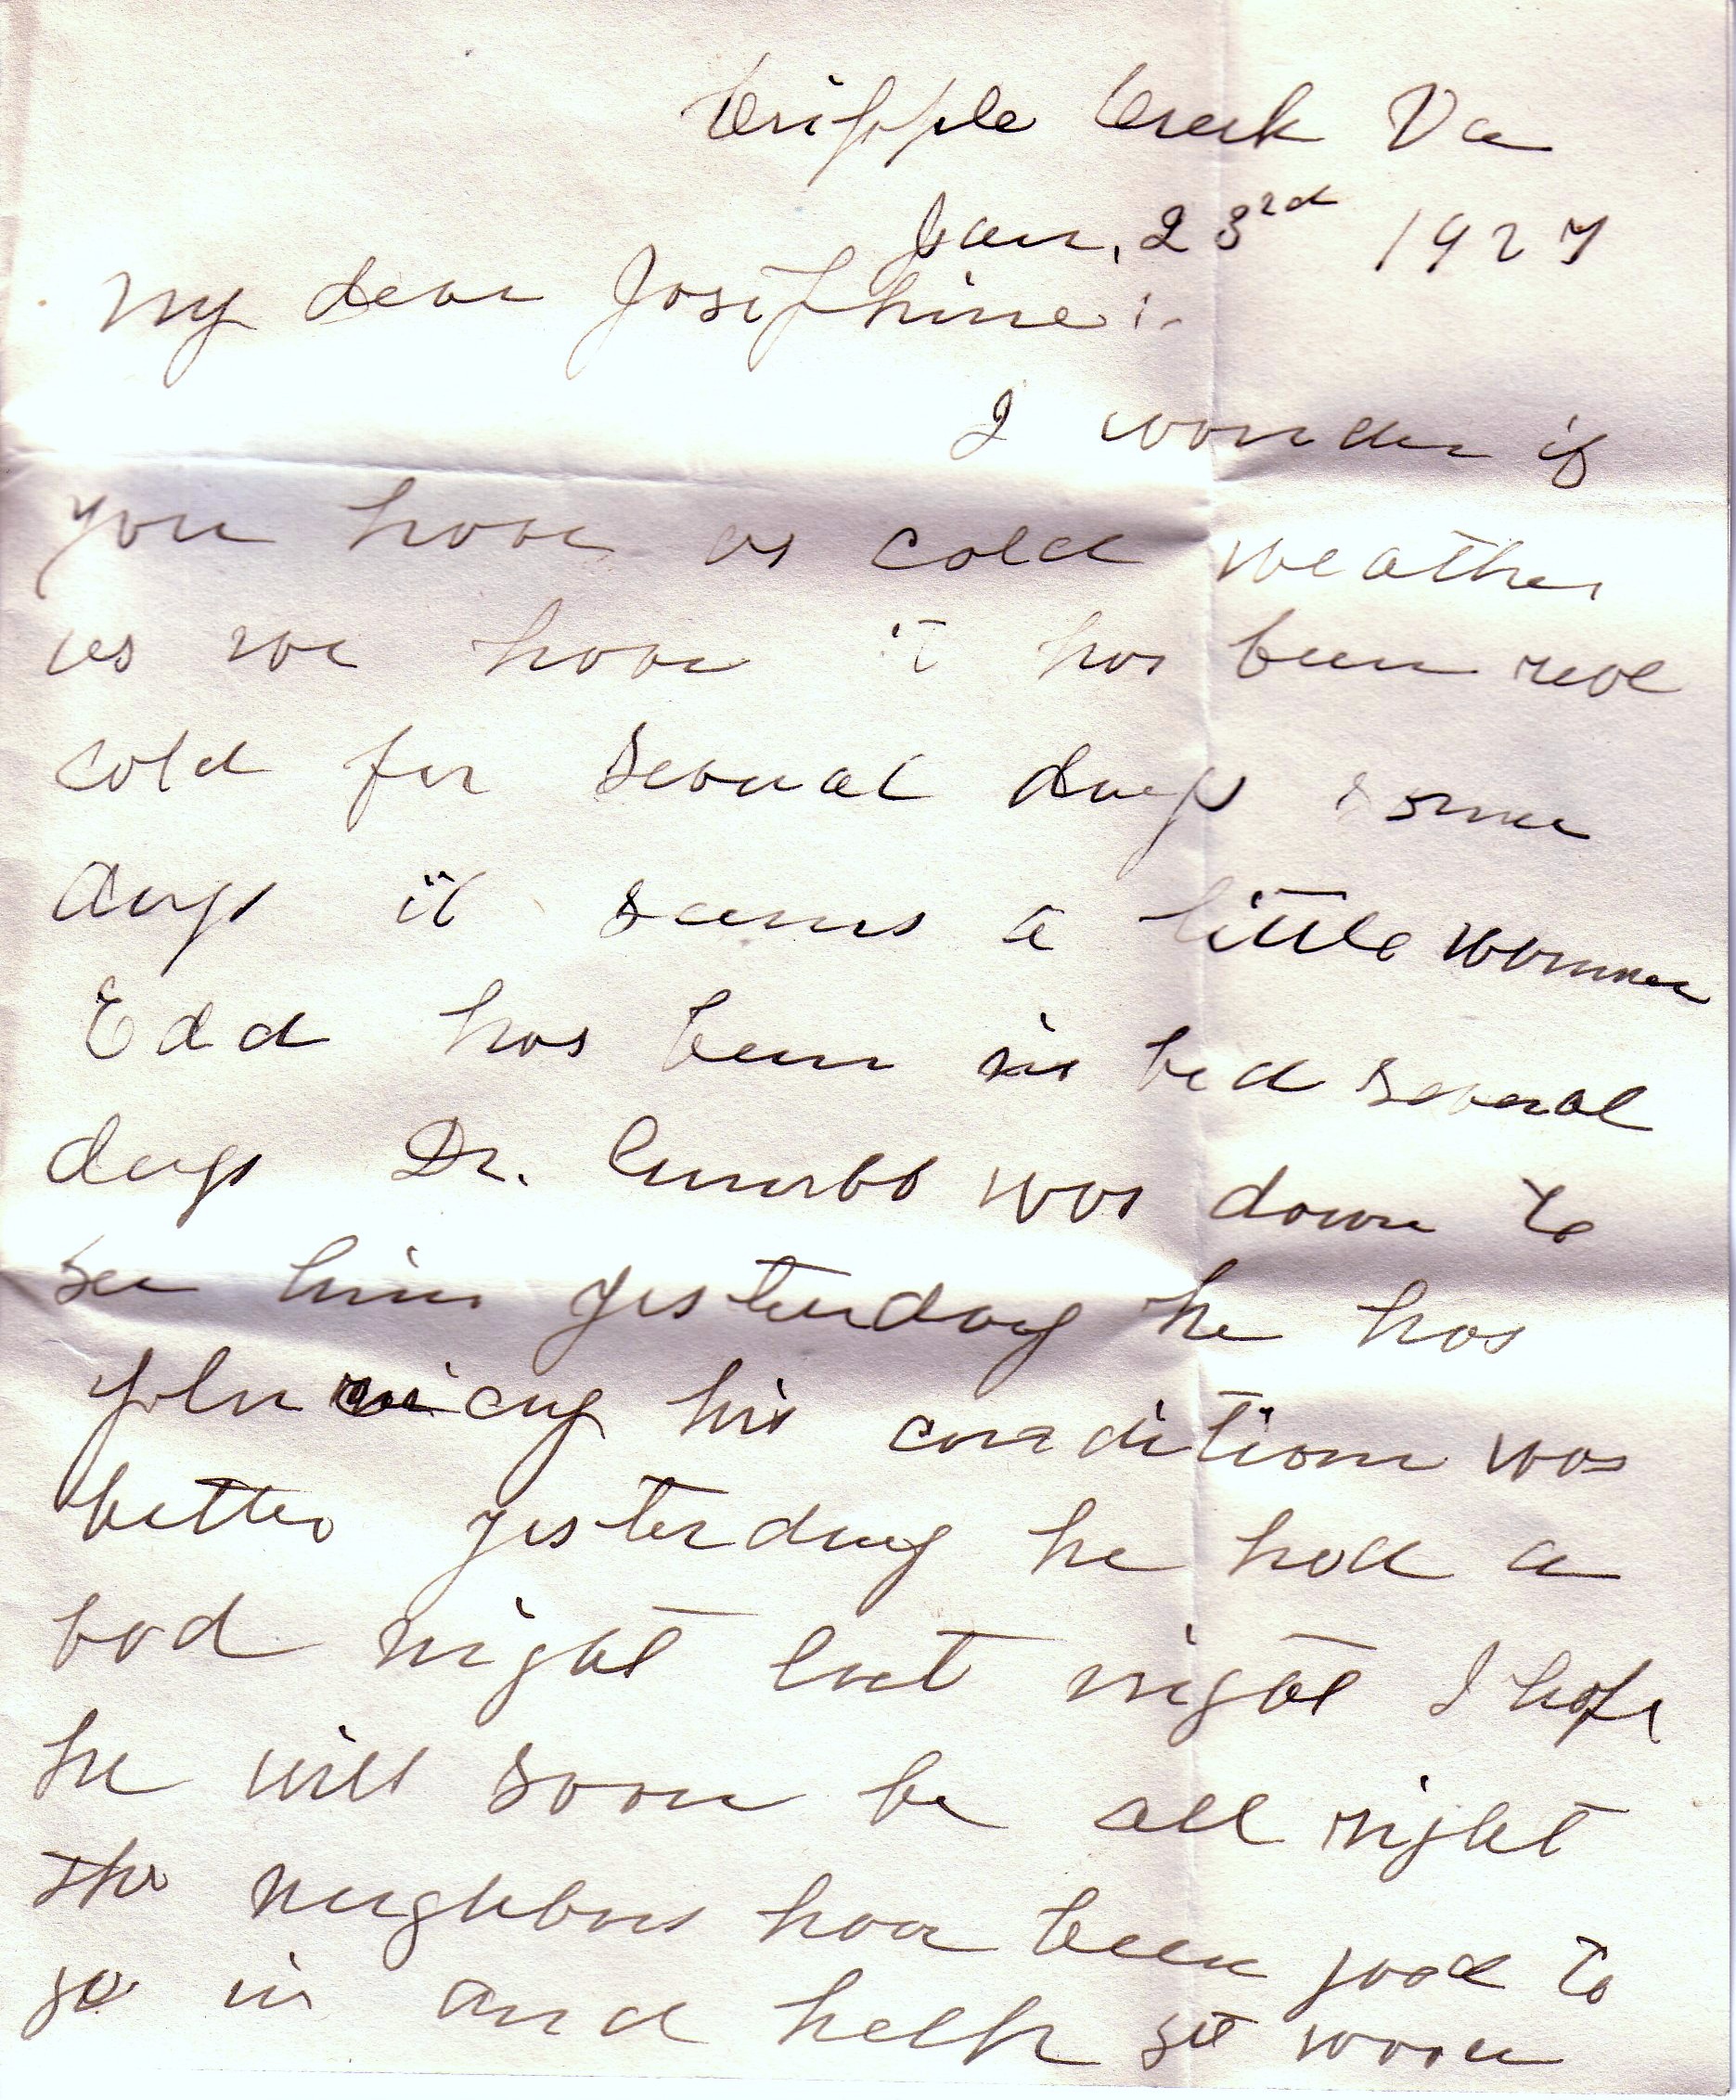 Cripple Creek Va
Jan. 23rd 1927
My dear Josephine:-
I wonder if
you have as cold weather
as we have it has been real
cold for several days some
days it seems a little warmer
Edd has been in bed several
days Dr. was down to
see him yesterday he has
his condition was
better yesterday he had a
bad night last night I hope
he will soon be all right
The neighbors have been good to
go in and help get wood